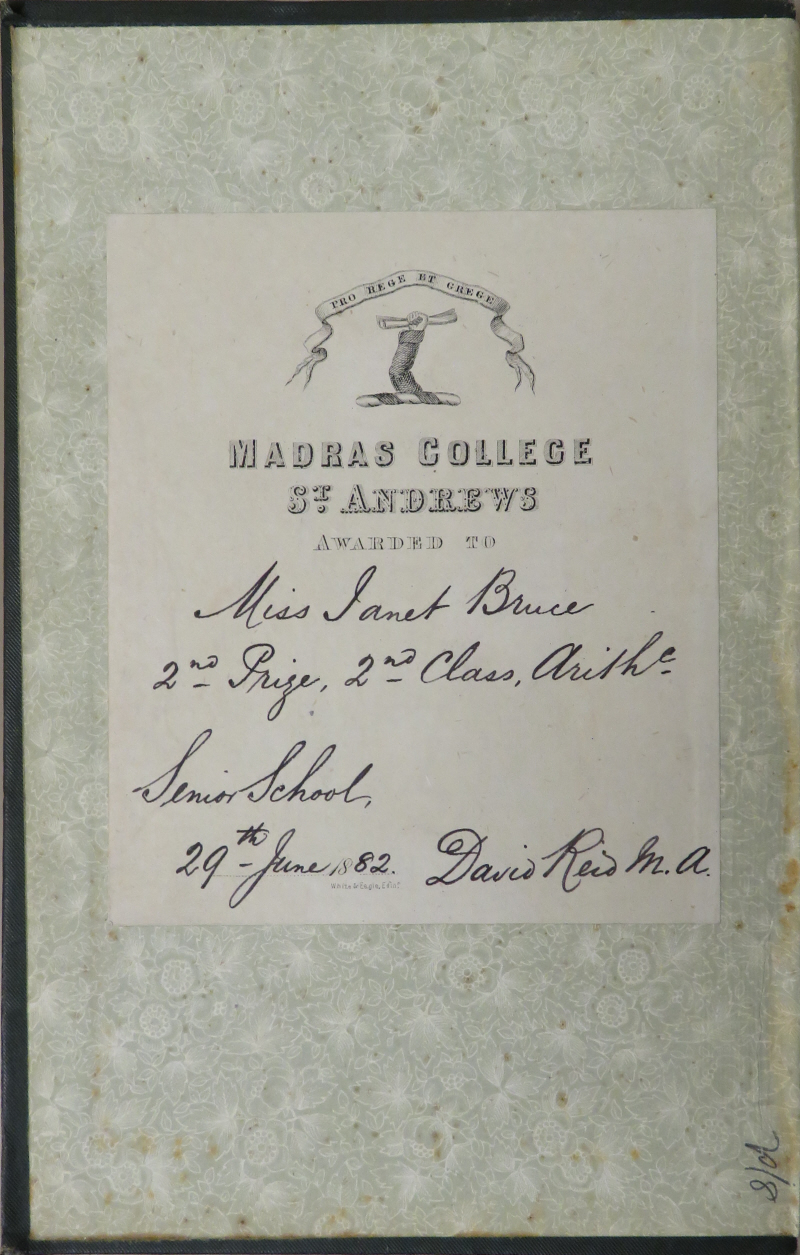 PRO REGE ET GREGE
MADRAS COLLEGE
ST. ANDREWS
AWARDED TO
Miss Janet Bruce
2nd Prize, 2nd Class, Arithc
Senior School,
29th June 1882. David Reid M.A.